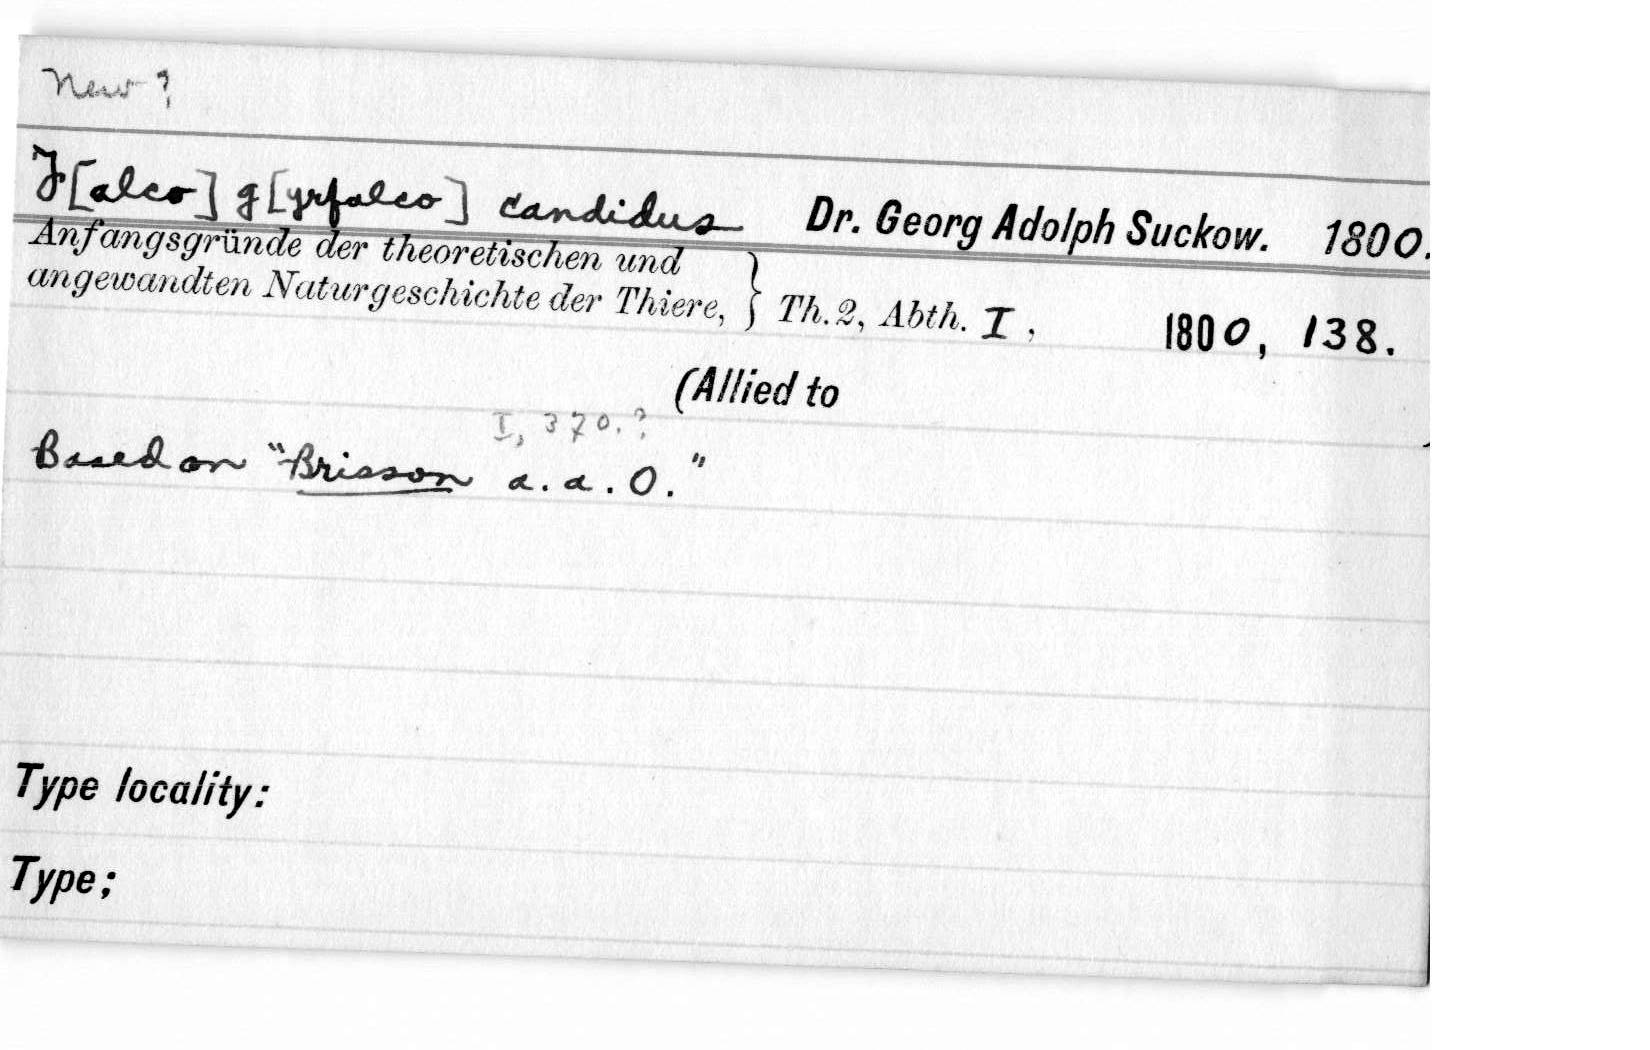 New ?
F[alco] g[yrfalco] candidus Dr. Georg Adolph Suckow. 1800.
Anfangsgründe der theoretischen und
angewandten Naturgeschichte der Thiere, } Th. 2, Abth. I, 1800, 138.
(Allied to
I, 370. ?
Based on "Brisson a. a. O."
Type locality:
Type;